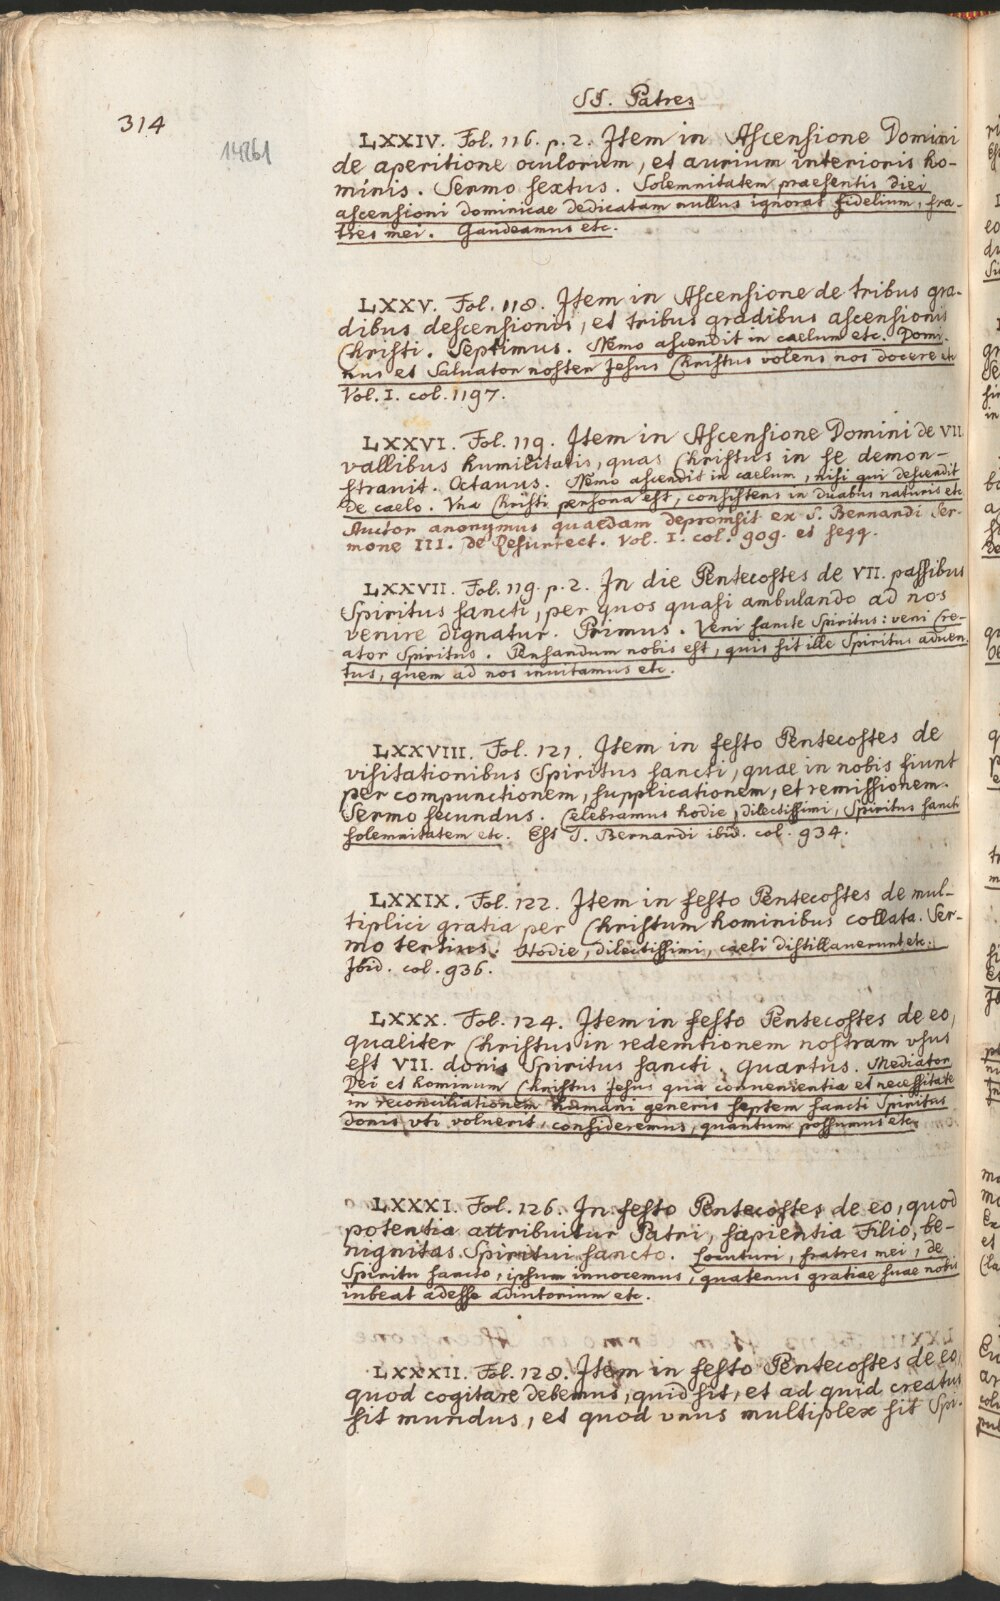 SS. Patres
314
14261
LXXIV. Fol. 116. p. 2. Item in Ascensione Domini
de aperitione oculorum, et aurium interioris ho-
minis. Sermo sextus. Solemnitatem praesentis diei
ascensioni dominicae dedicatam nullus ignorat fidelium, fra-
tres mei. Gaudeamus etc.
LXXV. Fol. 118. Item in Ascensione de tribus gra-
dibus descensionis, et tribus gradibus ascensionis
Christi. Septimus. Nemo ascendit in caelum etc. Domi-
nus et Saluator noster Jesus Christus volens nos docere etc
Vol. I. col. 1197.
LXXVI. Fol. 119. Item in Ascensione Domini de VII.
vallibus humilitatis, quas Christus in se demon-
strauit. Octauus. Nemo ascendit in caelum, nisi qui descendit
de caelo. Vna Christi persona est, consistens in duabus naturis etc
Auctor anonymus quaedam depromsit ex S. Bernardi Ser-
mone III. de Resurrect. Vol. I. col. 909. et seqq.
LXXVII. Fol. 119. p. 2. In die Pentecostes de VII. passibus
Spiritus sancti, per quos quasi ambulando ad nos
venire dignatur. Primus. Veni sancte Spiritus: veni Cre-
ator Spiritus. Pensandum nobis est, quis sit ille Spiritus aduen-
tus, quem ad nos inuitamus etc.
LXXVIII. Fol. 121. Item in festo Pentecostes de
visitationibus Spiritus sancti, quae in nobis fiunt
per compunctionem, supplicationem, et remissionem.
Sermo secundus. Celebramus hodie, dilectissimi, Spiritus sancti
solemnitatem etc. Est S. Bernardi ibid. col. 934.
LXXIX. Fol. 122. Item in festo Pentecostes de mul-
tiplici gratia per Christum hominibus collata. Ser-
mo tertius. Hodie, dilectissimi, caeli distillauerunt etc.
Ibid. col. 936.
LXXX. Fol. 124. Item in festo Pentecostes de eo,
qualiter Christus in redemtionem nostram vsus
est VII. donis Spiritus sancti. Quartus. Mediator
Dei et hominum Christus Jesus qua conuenientia et necessitate
in reconciliationem humani generis septem sancti Spiritus
donis vti voluerit, consideremus, quantum possumus etc.
LXXXI. Fol. 126. In festo Pentecostes de eo, quod
potentia attribuitur Patri, sapientia Filio, be-
nignitas Spiritui sancto. Locuturi, fratres mei, de
Spiritu sancto, ipsum inuocemus, quatenus gratiae suae nobis
iubeat adesse adiutorium etc.
LXXXII. Fol. 128. Item in festo Pentecostes de eo,
quod cogitare debemus, quid sit, et ad quid creatus
sit mundus, et quod vnus multiplex sit Spi-